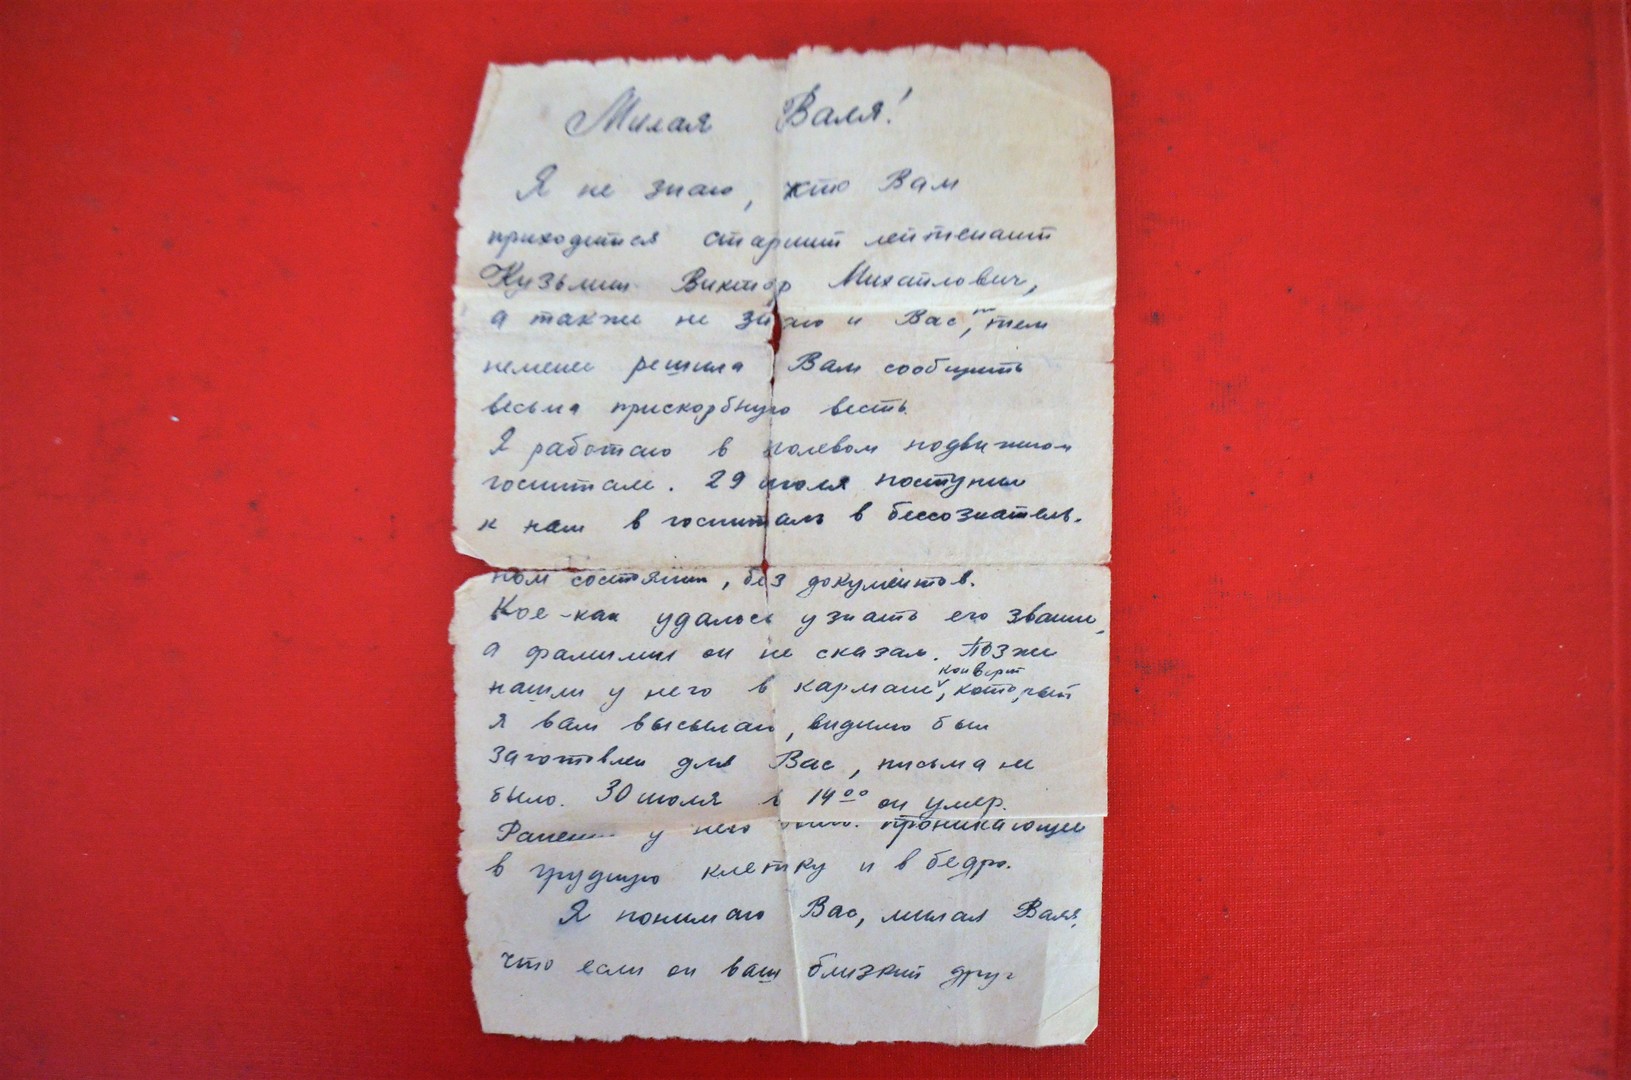 Милая Валя!
Я не знаю, кто Вам
приходится старший лейтенант
Кузьмин Виктор Михайлович,
а также не знаю и Вас, но тем
неменее решила Вам сообщить
весьма прискорбную весть.
Я работаю в полевом подвижном
госпитале. 29 июля поступил
к нам в госпиталь в бессознатель-
ном состоянии, без документов.
Кое-как удалось узнать его звание,
а фамилии он не сказал. Позже
конверт
нашли у него в кармане, который
я вам высылаю, видимо был
заготовлен для Вас, письма не
было. 30 июля в 14⁰⁰ он умер.
Ранение у него было проникающее
в грудную клетку и в бедро.
Я понимаю Вас, милая Валя,
что если он ваш близкий друг